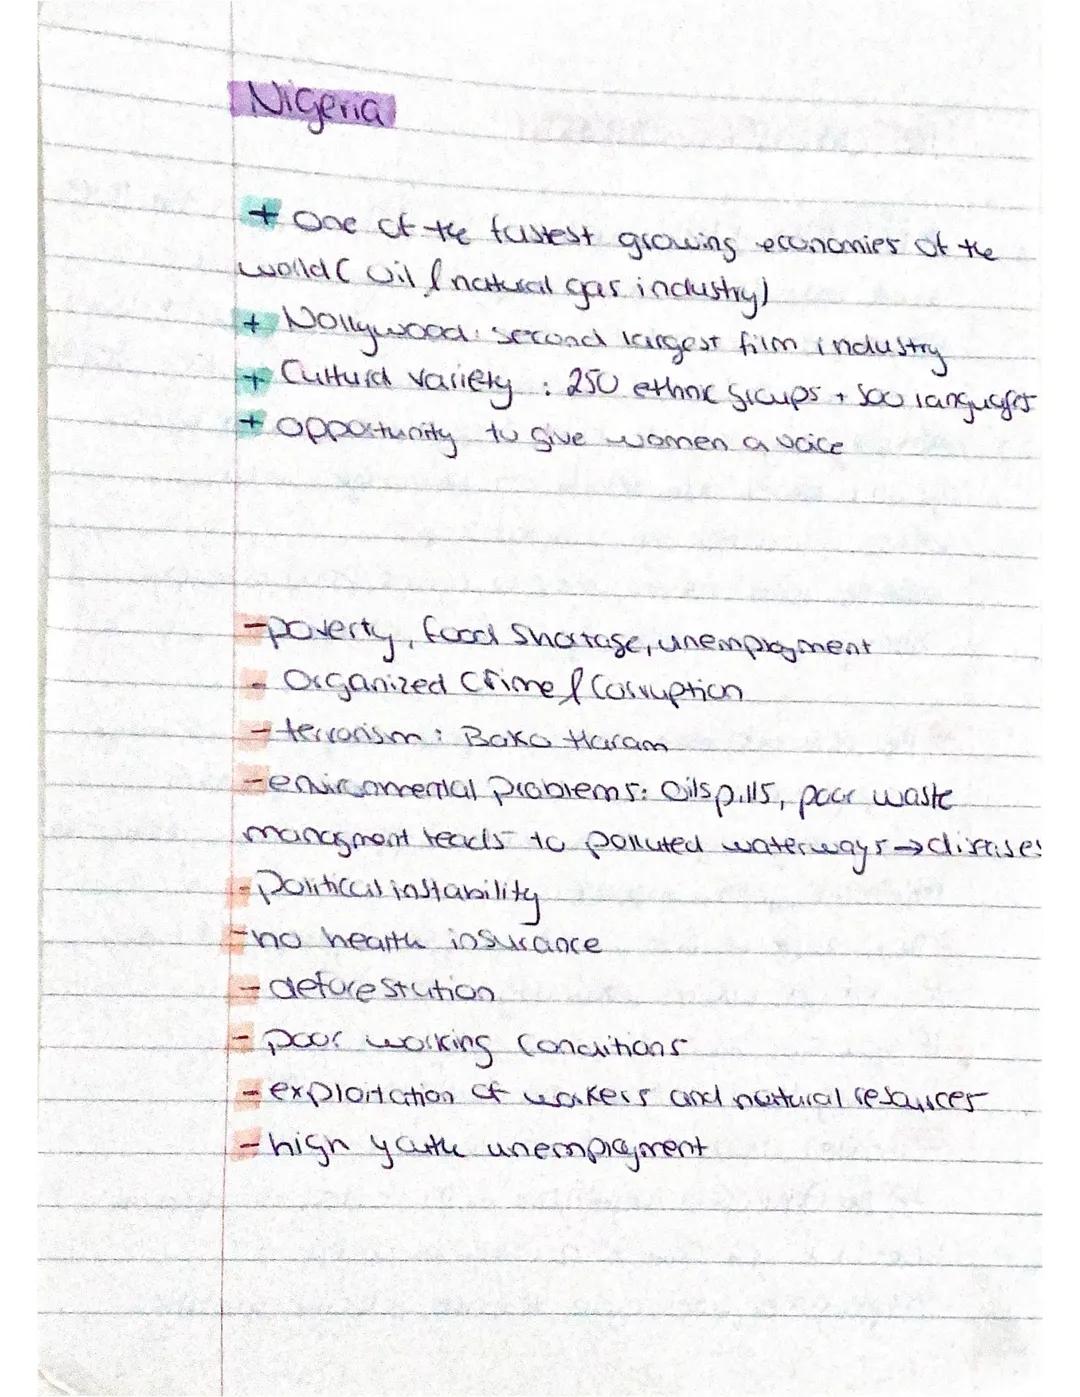 Nigeria
+ One of the fastest growing economies of the
world ( oil & natural gas industry)
+ Nollywood: second largest film industry
+ Cultural variety : 250 ethnic groups + 500 languages
+ opportunity to give women a voice
- poverty, food shortage, unemployment
- Organized Crime & Corruption
- terrorism : Boko Haram
- enviromental problems: Oilspills, poor waste
managment leads to polluted waterways → diseases
- Political instability
- no health insurance
- deforestation
- poor working conditions
- exploitation of workers and natural resources
- high youth unemployment